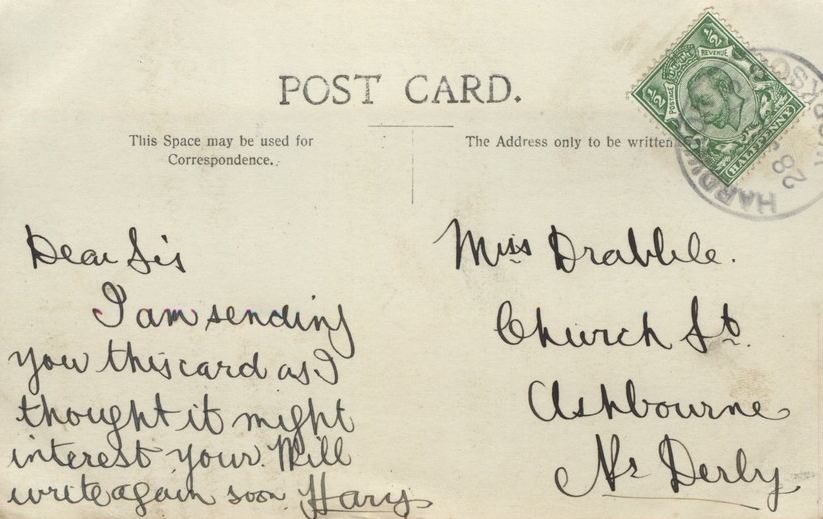 POST CARD.
This Space may be used for
Correspondence.
The Address only to be written
½
POSTAGE
REVENUE
½
HALFPENNY
28
Dear Sis
I am sending
you this card as I
thought it might
interest your. Will
write again soon. Harys
Miss Drabble.
Church St.
Ashbourne
Nr Derby